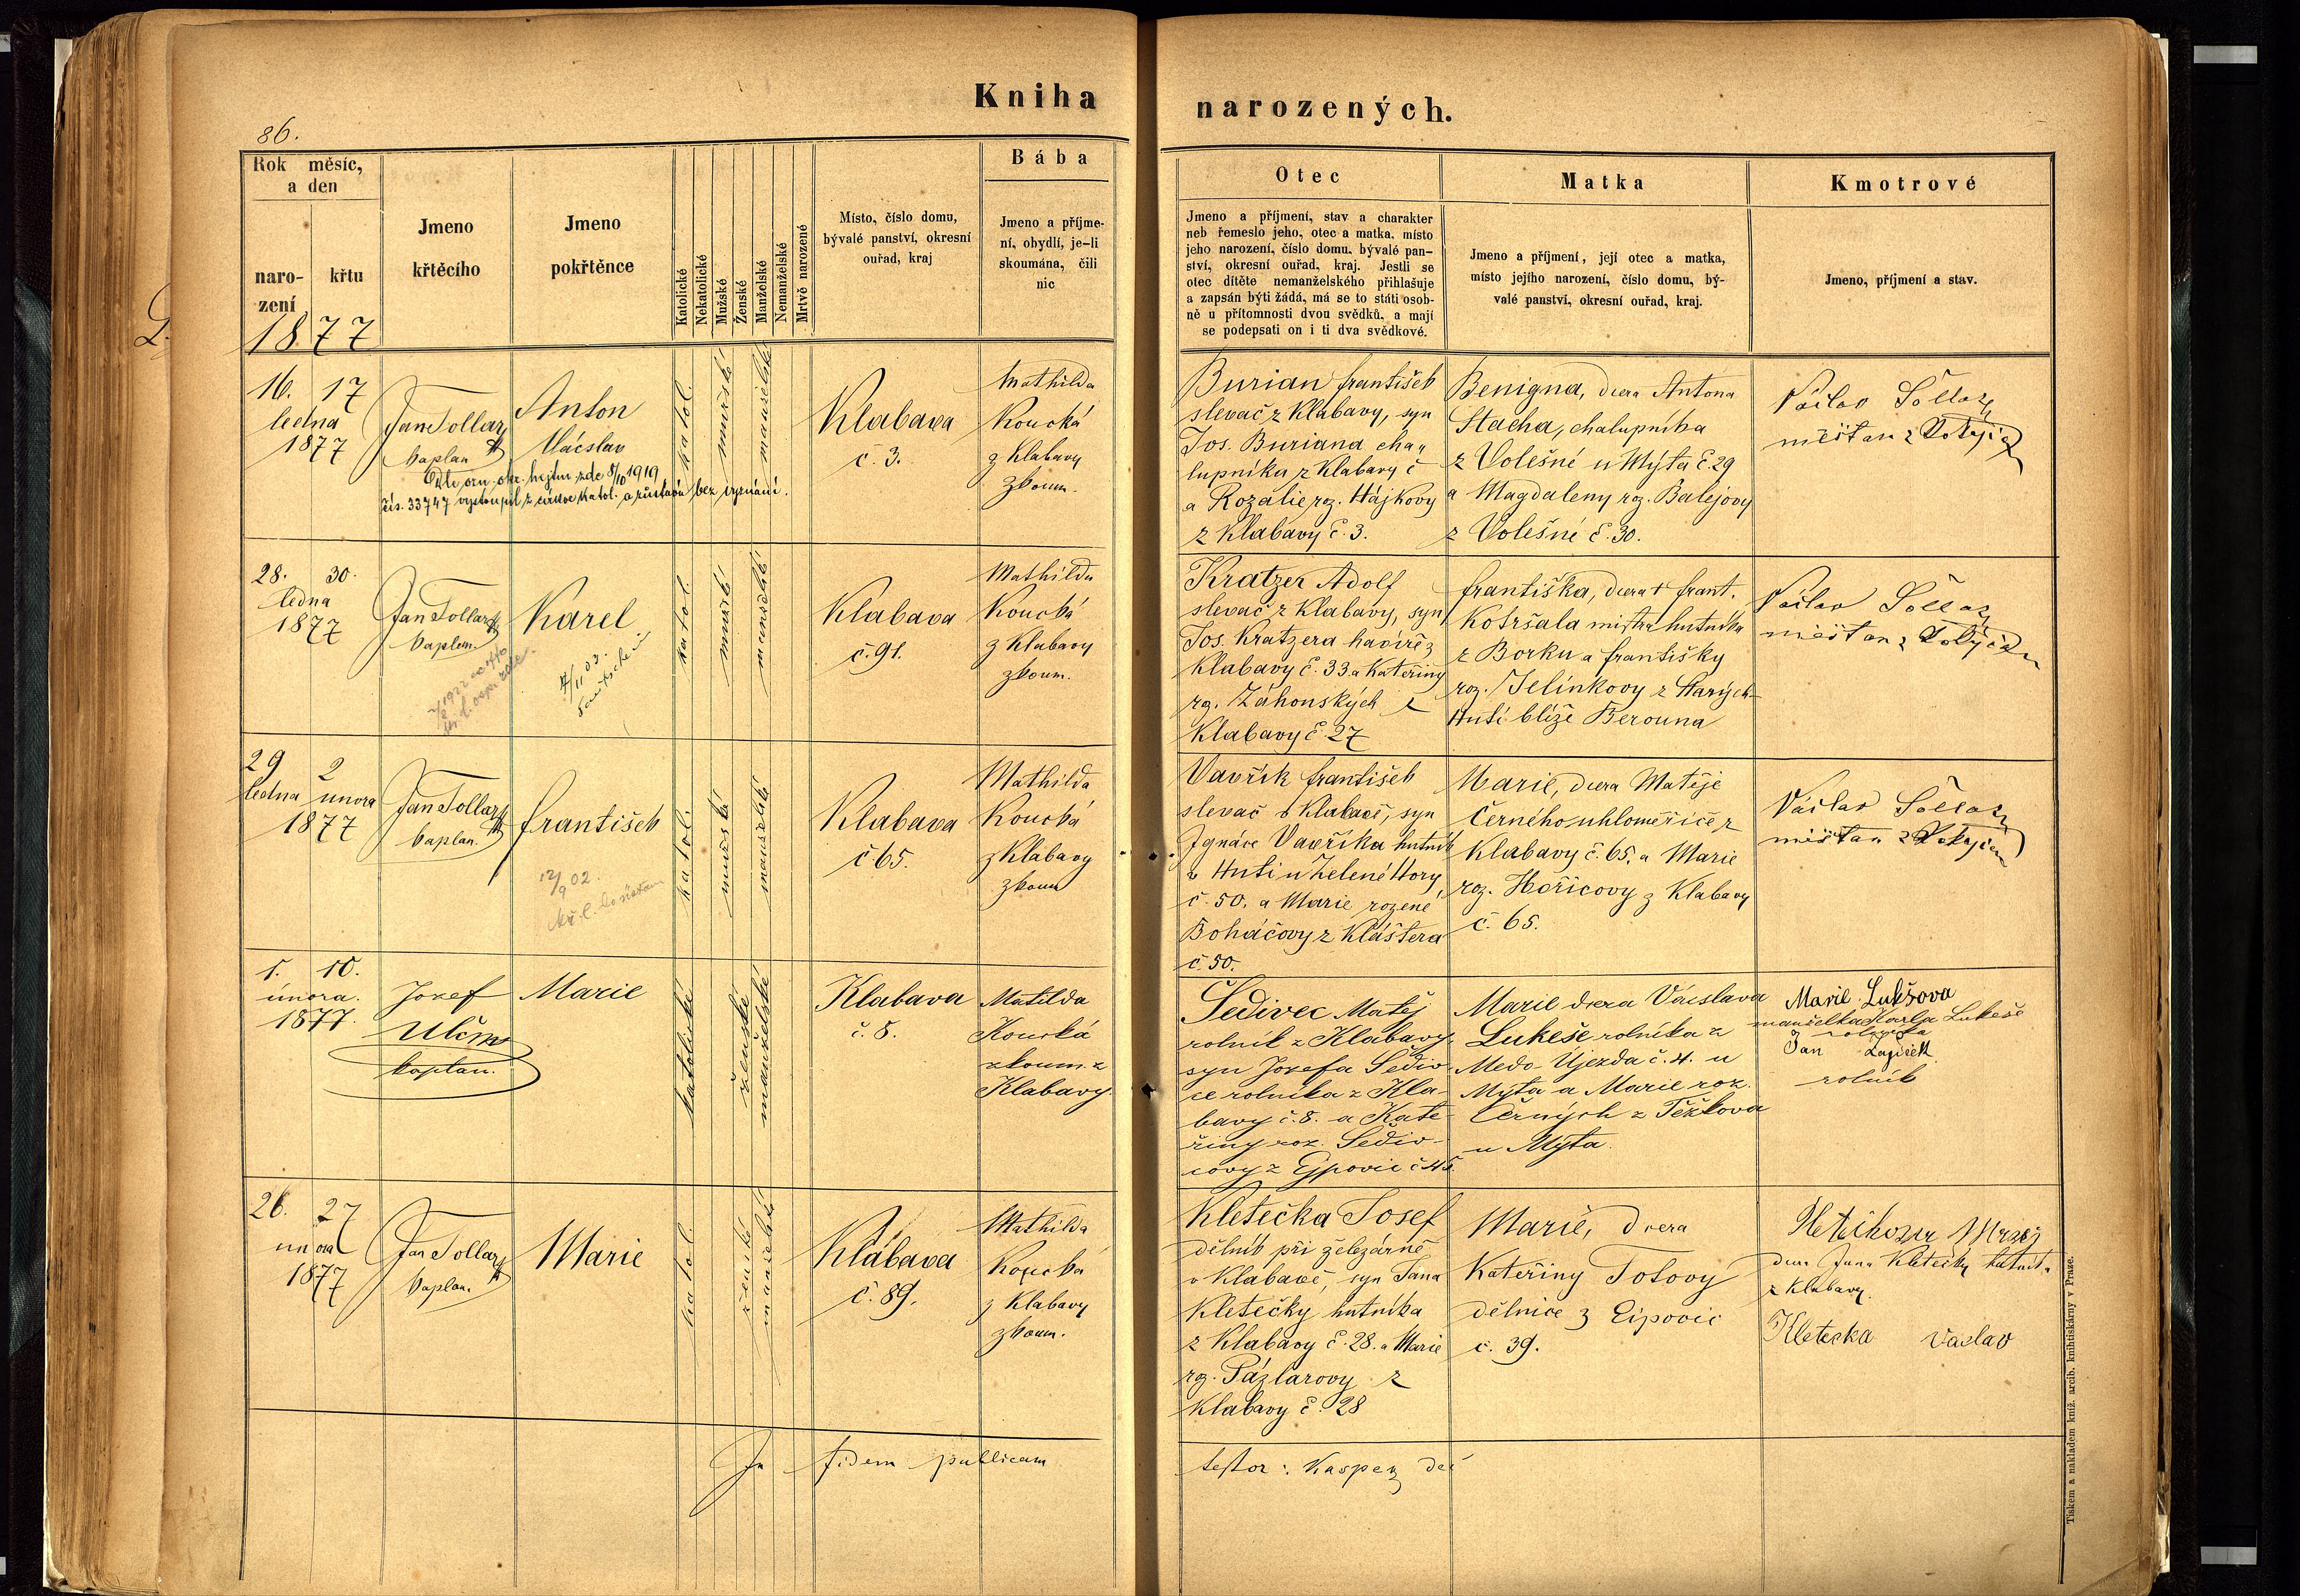 Kniha narozených.
86.
Rok měsíc,
a den
naro-
zení
křtu
1877
Jmeno
křtěcího
Jmeno
pokřtěnce
Katolické
Nekatolické
Mužské
Ženské
Manželské
Nemanželské
Mrtvě narozené
Místo, číslo domu,
bývalé panství, okresní
ouřad, kraj
Bába
Jmeno a příjme-
ní, obydlí, je-li
skoumána, čili
nic
Otec
Jmeno a příjmení, stav a charakter
neb řemeslo jeho, otec a matka, místo
jeho narození, číslo domu, bývalé pan-
ství, okresní ouřad, kraj. Jestli se
otec dítěte nemanželského přihlašuje
a zapsán býti žádá, má se to státi osob-
ně u přítomnosti dvou svědků, a mají
se podepsati on i ti dva svědkové.
Matka
Jmeno a příjmení, její otec a matka,
místo jejího narození, číslo domu, bý-
valé panství, okresní ouřad, kraj.
Kmotrové
Jmeno, příjmení a stav.
16. 17
ledna
1877
Jan Tollar
kaplan
Anton
Václav
č̌ís. 33747 vystoupil z církve katol. a zůstává bez vyznání.
katol.
mužské
manželské
Klabava
č. 3.
Mathilda
Koucká
z Klabavy
zkoum.
Burian František
slevač z Klabavy, syn
Jos. Buriana cha-
lupníka z Klabavy č
a Rozalie roz. Hájkovy
z Klabavy č. 3.
Benigna, dcera Antona
Stacha, chalupníka
z Volešné u Mýta č. 29
a Magdaleny roz. Balejovy
z Volešné č. 30.
Václav
měšťan z
28. 30.
ledna
1877
Jan Tollar
kaplan
Karel
katol.
mužské
manželské
Klabava
č. 91.
Mathilda
Koucká
z Klabavy
zkoum.
Kratzer Adolf
slevač z Klabavy, syn
Jos. Kratzera havíře z
Klabavy č. 33. a Kateřiny
rz. Záhonských z
Klabavy č. 27
Františka, dcera † Frant.
Kotršala mistra hutníka
z Borku a Františky
roz. Jelínkovy z Starých
Hutí blíže Berouna
Václav
měšťan z
29 2
ledna února
1877
Jan Tollar
kaplan.
František
12/9 02.
katol.
mužské
manželské
Klabava
č 65.
Mathilda
Koucká
z Klabavy
zkoum
Vavřík František
slevač v Klabavě, syn
Ignáce Vavříka hutník
z Huti u Zelené Hory
č. 50. a Marie rozené
Boháčovy z Kláštera
č. 50.
Marie, dcera Matěje
Černého uhloměřiče z
Klabavy č. 65. a Marie
roz. Hořicovy z Klabavy
č. 65.
Václav
měšťan z
1. 10.
února.
1877.
Josef
kaplan.
Marie
katolické
ženské
manželské
Klabava
č. 8.
Matilda
Koucká
zkoum. z
Klabavy.
Šedivec Matěj
rolník z Klabavy,
syn Josefa Šediv-
ce rolníka z Kla
bavy č. 8. a Kate-
řiny roz. Šediv-
covy z Ejpovic č 45.
Marie dcera Václava
Lukeše rolníka z
Medo-Újezda č. 4. u
Mýta a Marie roz.
Černých z Těškova
u Mýta.
Marie Lukšova
manželka Karla Lukeše
rolníka
Jan
rolník
26. 27
února
1877
Jan Tollar
kaplan.
Marie
katol.
ženské
manželské
Klabava
č. 89.
Mathilda
Koucká
z Klabavy
zkoum.
Kletečka Josef
dělník při železárně
v Klabavě, syn Jana
Kletečky, hutníka
z Klabavy č. 28. a Marie
rz. Pázlarovy z
Klabavy č. 28
Marie, dcera
Kateřiny Totovy
dělnice z Eipovic
č. 39.
dcera Jana Kletečky hutníka
z Klabavy.
Kletecka Vaclav
In fidem publicam
testor: Kasper
Tiskem a nákladem kníž. arcib. knihtiskárny v Praze.